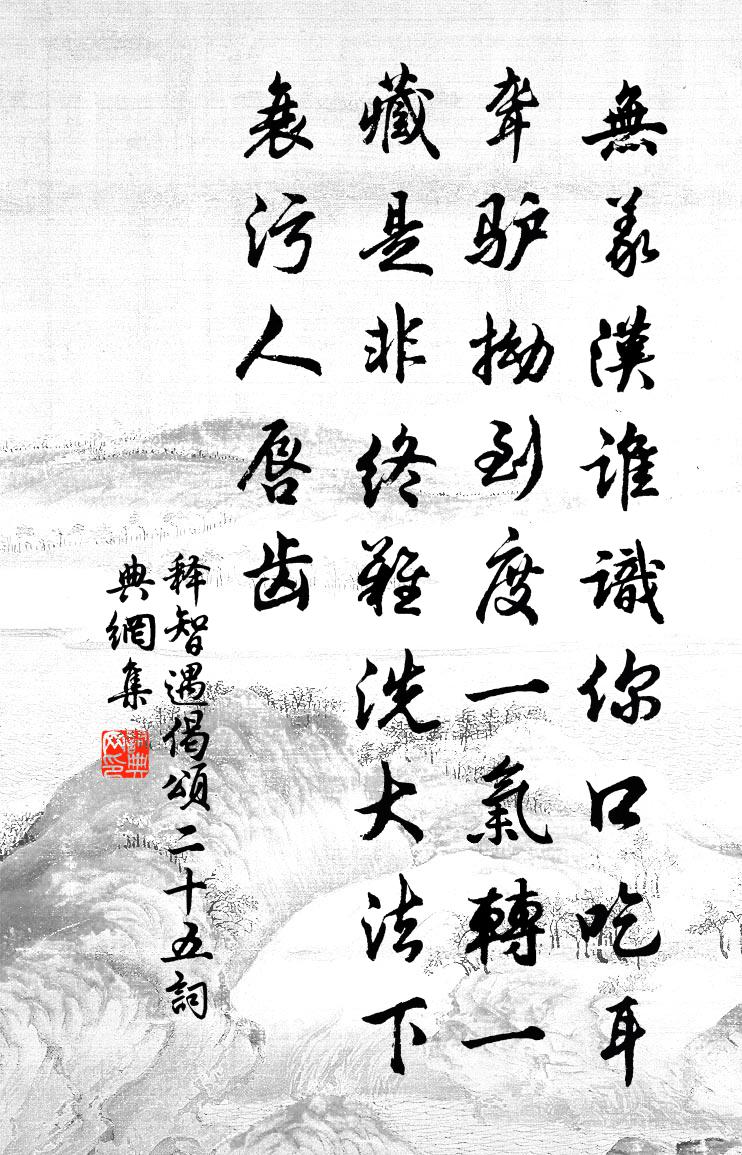 無義漢誰識你口吃耳
聋驴拗到度一氣轉一
藏是非終難洗大法下
衰污人唇齿
释智遇偈頌二十五詞
典網集
詞典
网印